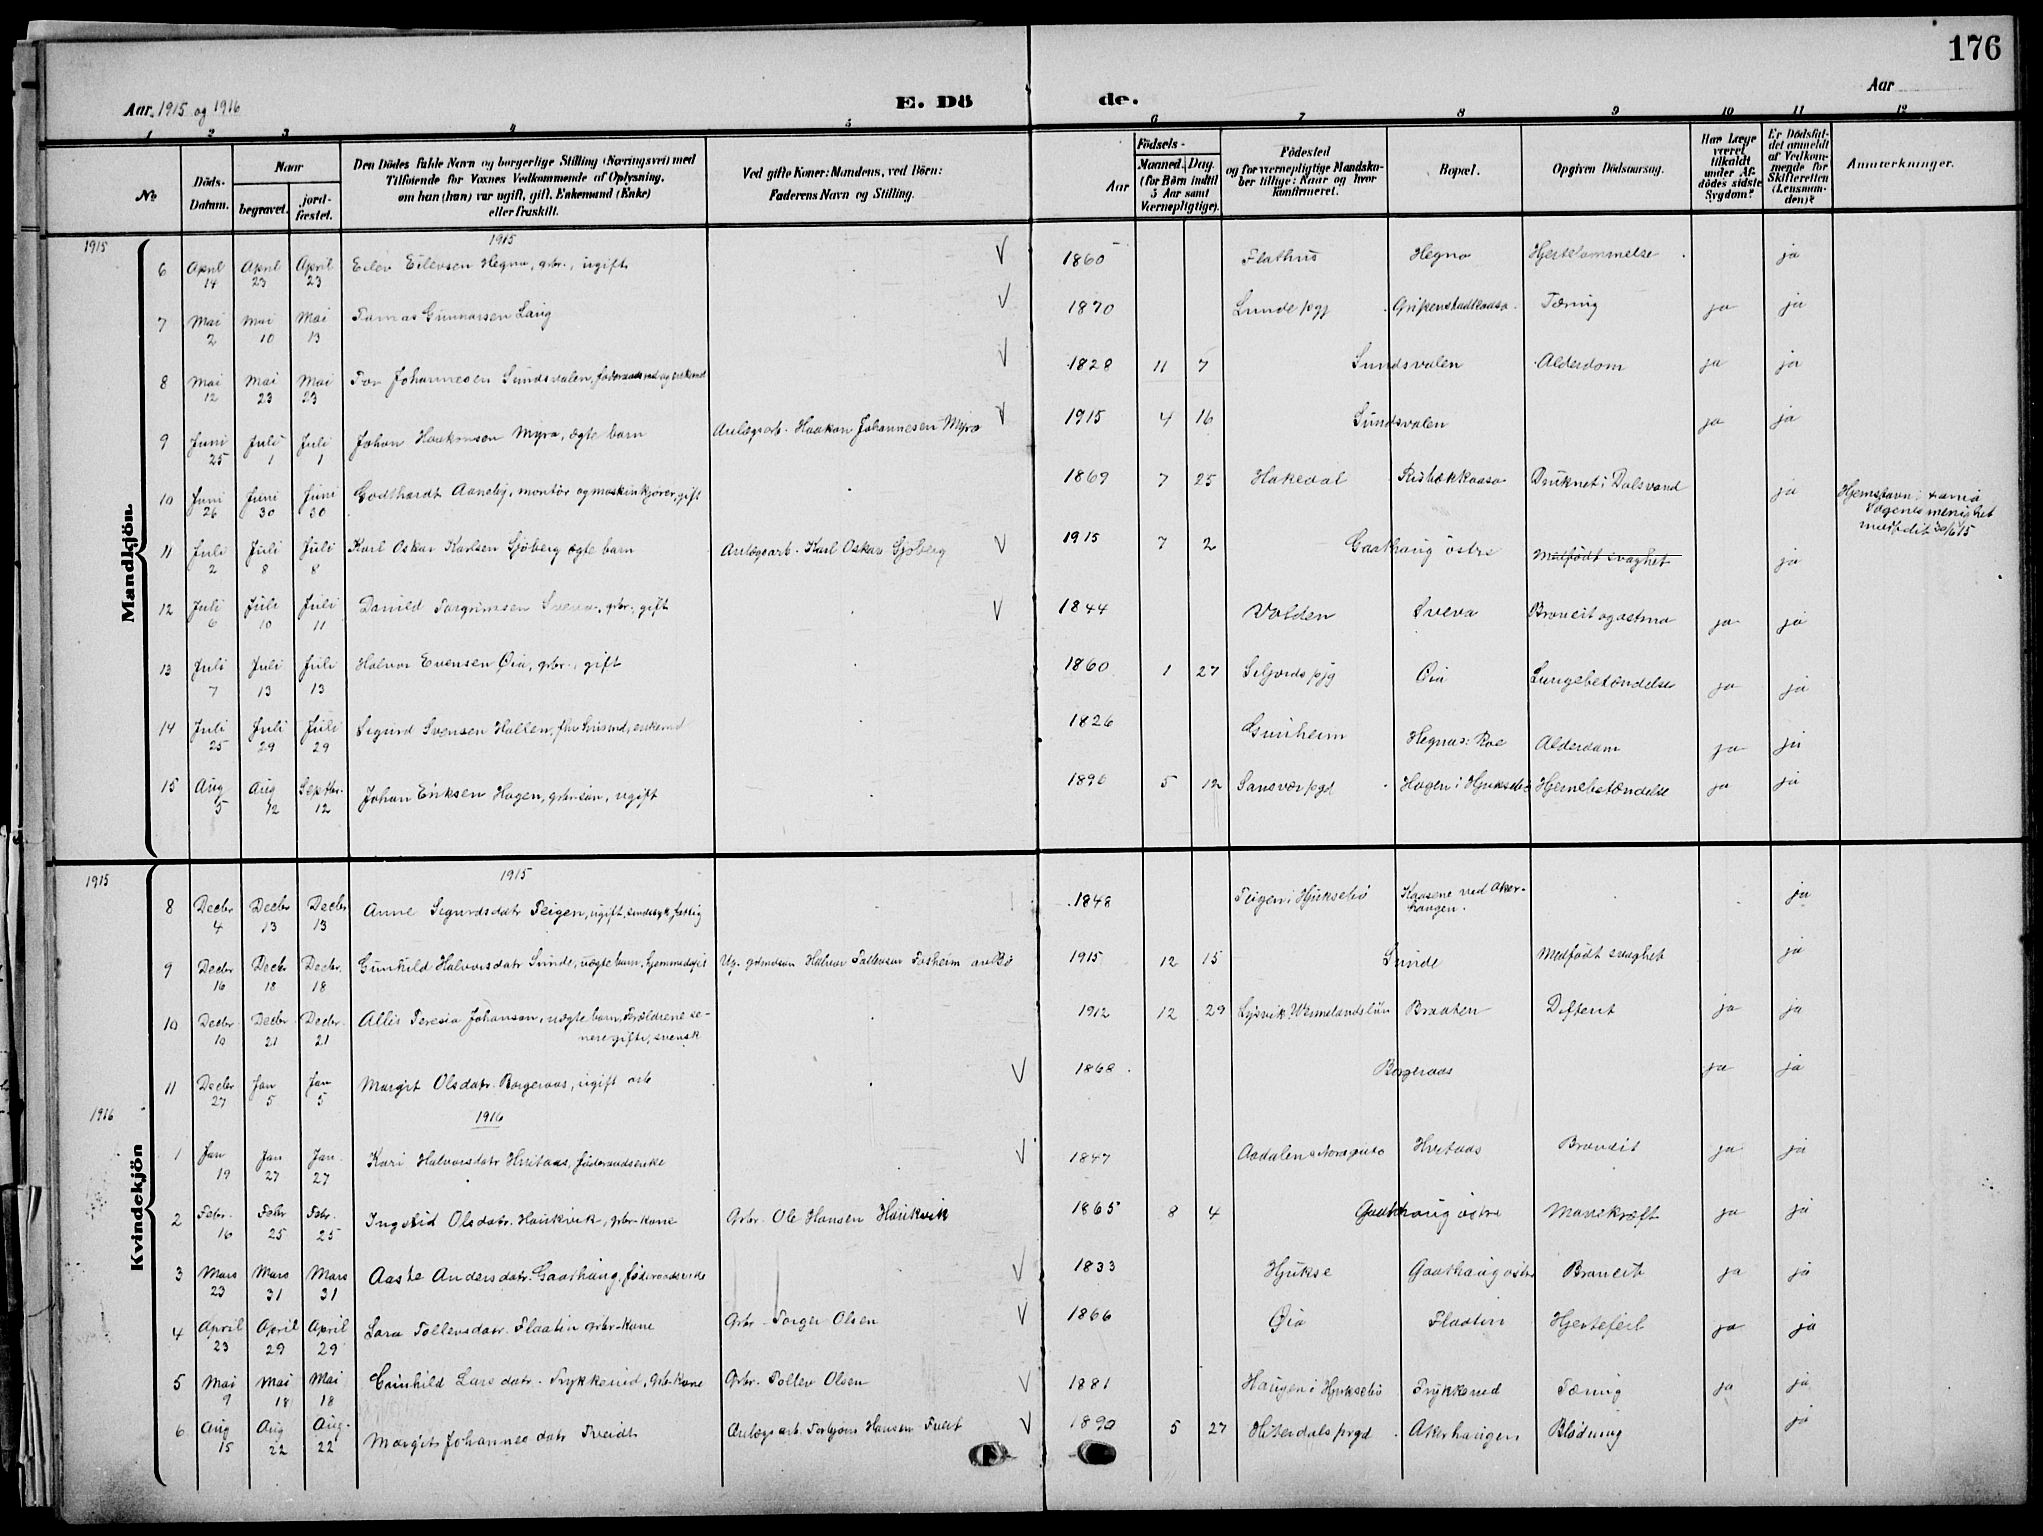 176
Aar. 1915 og 1916 E. Dö de. Aar
1 2 3 4 5 6 7 8 9 10 11 12
No. Döds-Datum. Naar begravet. jord-fæstet. Den Dödes fulde Navn og borgerlige Stilling (Næringsvei) med Tilföiende for Voxnes Vedkommende af Oplysning, om han (hun) var ugift, gift, Enkemand (Enke) eller fraskilt. Ved gifte Koner: Mandens, ved Börn: Faderens Navn og Stilling. Aar Födsels- Maaned. Dag. (for Börn indtil 5 Aar samt Værnepligtige). Födested og for værnepligtige Mandska-ber tillige: Naar og hvor konfirmeret. Bopæl. Opgiven Dödsaarsag. Har Læge været tilkaldt under Af-dödes sidste Sygdom? Er Dödsfal-det anmeldt af Vedkom-mende for Skifteretten (Lensman-den)? Anmærkninger.
Mandkjön.
1915 1915
6 April 14 April 23 April 23 Eilev Eilevsen Hegna, gbr., ugift V 1860 Flathus Hegna Hjertelammelse ja
7 Mai 2 Mai 10 Mai 13 Tomas Gunnarsen Laug V 1870 Lunde pgj Tæring ja ja
8 Mai 12 Mai 23 Mai 23 Tor Johannesen Sundsvalen, V 1828 11 7 Sundsvalen Alderdom ja ja
9 Juni 25 Juli 1 Juli 1 Johan Haakonsen Myra, ægte barn Anlægsarb. Haakon Johannesen Myra V 1915 4 16 Sundsvalen ja ja
10 Juni 26 Juni 30 Juni 30 Godthardt Aaneby, montör og maskinkjörer, gift 1869 7 25 Hakedal Druknet i Dalsvand ja Hjemstavn:
11 Juli 2 Juli 8 Juli 8 Karl Oskar Karlsen Sjöberg ægte barn Anlægsarb. Karl Oskar Sjöberg V 1915 7 2 Gaathaug östre Medfödt svaghet ja
12 Juli 6 Juli 10 Juli 11 Torgrimsen Sveva, gbr., gift V 1844 Valden Sveva Bronkit og astma ja ja
13 Juli 7 Juli 13 Juli 13 Halvor Evensen Öia, gbr., gift 1860 1 27 Seljords pgj Öia Lungebetændelse ja ja
14 Juli 25 Juli 29 Juli 29 Sigurd Svensen Hallen, enkemd 1826 Gunheim Alderdom ja ja
15 Aug 5 Aug 12 Septbr. 12 Johan Eriksen Hagen, gbr.sön, ugift 1896 5 12 Sansvær pgd Hagen i Hjuksebö Hjernebetændelse ja ja
Kvindekjön
1915 1915
8 Decbr 4 Decbr 13 Decbr 13 Anne Sigurdsdatr Teigen, ugift, sindssyk, fattig 1848 Teigen i Hjuksebö Kaasene ved Aker-haugen. ja
9 Decbr 16 Decbr 18 Decbr. 18 Gunhild Halvorsdatr Sunde, uægte barn, hjemmedöpt Ug. Halvor Tollevsen 1915 12 15 Sunde Medfödt svaghet ja
10 Decbr. 10 Decbr. 21 Decbr. 21 Allis Teresia Johanson, uægte barn, Forældrene se-nere gifte, svensk 1912 12 29 Lysvik, Wermlandslän Braaten Difterit ja ja
11 Decbr 27 Jan 5 Jan 5 Margit Olsdatr. Borgeraas, ugift V 1868 Borgeraas ja ja
1916 1916
1 Jan 19 Jan 27 Jan. 27 Kari Halvorsdatr Hvitaas, föderaadsenke V 1847 Aadalen Hvitaas Bronkit ja ja
2 Febr. 16 Febr 25 Febr. 25 Ingebid Olsdatr. Haukvik, gbr-kone Grbr. Ole Hansen Haukvik 1865 8 4 Gaathaug östre Mavekræft ja ja
3 Mars 23 Mars 31 Mars 31 Aaste Andersdatr. Gaathaug, föderaadsenke V 1833 Hjukse Gaathaug östre Bronkit ja ja
4 April 23 April 29 April 29 Sara Tollevsdatr. Flaatin gbr-kone Grbr. Torger Olsen V 1866 Öia Flaatin Hjertefeil ja ja
5 Mai 9 Mai 18 Mai 18 Gunhild Larsdatr. Trykkerud, Gbr-kone Grbr. Tollev Olsen V 1881 Haugen i Hjuksebö Trykkerud Tæring ja ja
6 Aug 15 Aug 22 Aug. 22 Margit Johannesdatr Tveidt Anlægsarb. Torbjörn Hansen Tveit V 1890 5 27 Hiterdals prgd Akerhaugen Blödning ja